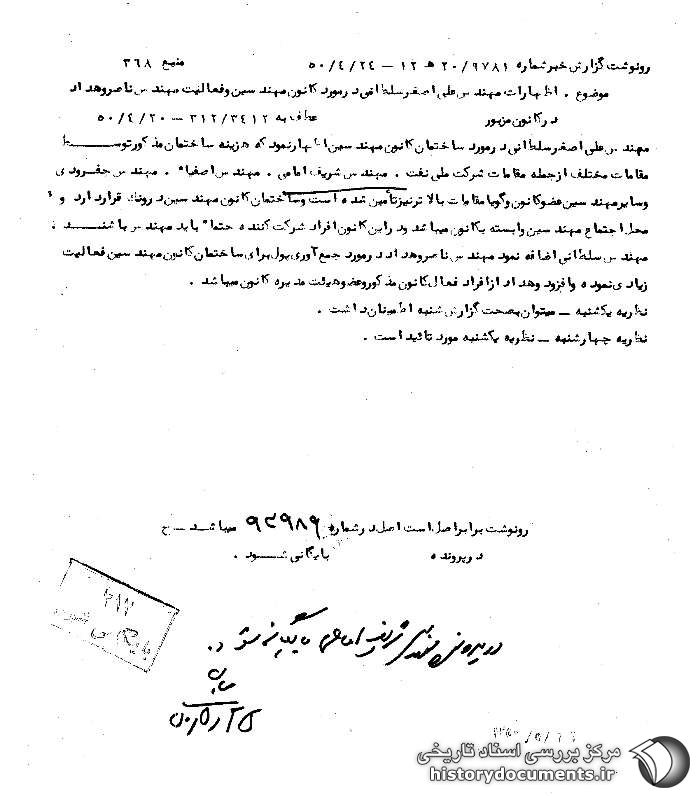 رونوشت گزارش خبر شماره ۲۰/۹۷۸۱ ه‍ ۱۲ – ۵۰/۴/۲۴ منبع ۳۶۸
موضوع . اظهارات مهندس علی اصغر سلطانی در مورد کانون مهندسین و فعالیت مهندس ناصر وهداد
در کانون مزبور عطف به ۳۱۲/۳۴۱۲ – ۵۰/۴/۲۰
مهندس علی اصغر سلطانی در مورد ساختمان کانون مهندسین اظهار نمود که هزینه ساختمان مذکور توسط
مقامات مختلف از جمله مقامات شرکت ملی نفت . مهندس شریف امامی . مهندس اصفیاء . مهندس جفرودی
و سایر مهندسین عضو کانون و گویا مقامات بالاتر نیز تأمین شده است و ساختمان کانون مهندسین در ونک قرار دارد و
محل اجتماع مهندسین وابسته بکانون میباشد و در این کانون افراد شرکت کننده حتما" باید مهندس باشند .
مهندس سلطانی اضافه نمود مهندس ناصر وهداد در مورد جمع آوری پول برای ساختمان کانون مهندسین فعالیت
زیادی نموده و افزود وهداد از افراد فعال کانون مذکور و عضو هیئت مدیره کانون میباشد .
نظریه یکشنبه – میتوان بصحت گزارش شنبه اطمینان داشت .
نظریه چهارشنبه – نظریه یکشنبه مورد تائید است .
رونوشت برابر اصل است اصل در شماره ۹۲۹۸۹ میباشد – ح
در پرونده بایگانی شود .
در پرونده مهندس شریف امامی بایگانی شود .
بایگانی
مرکز بررسی اسناد تاریخی
historydocuments.ir